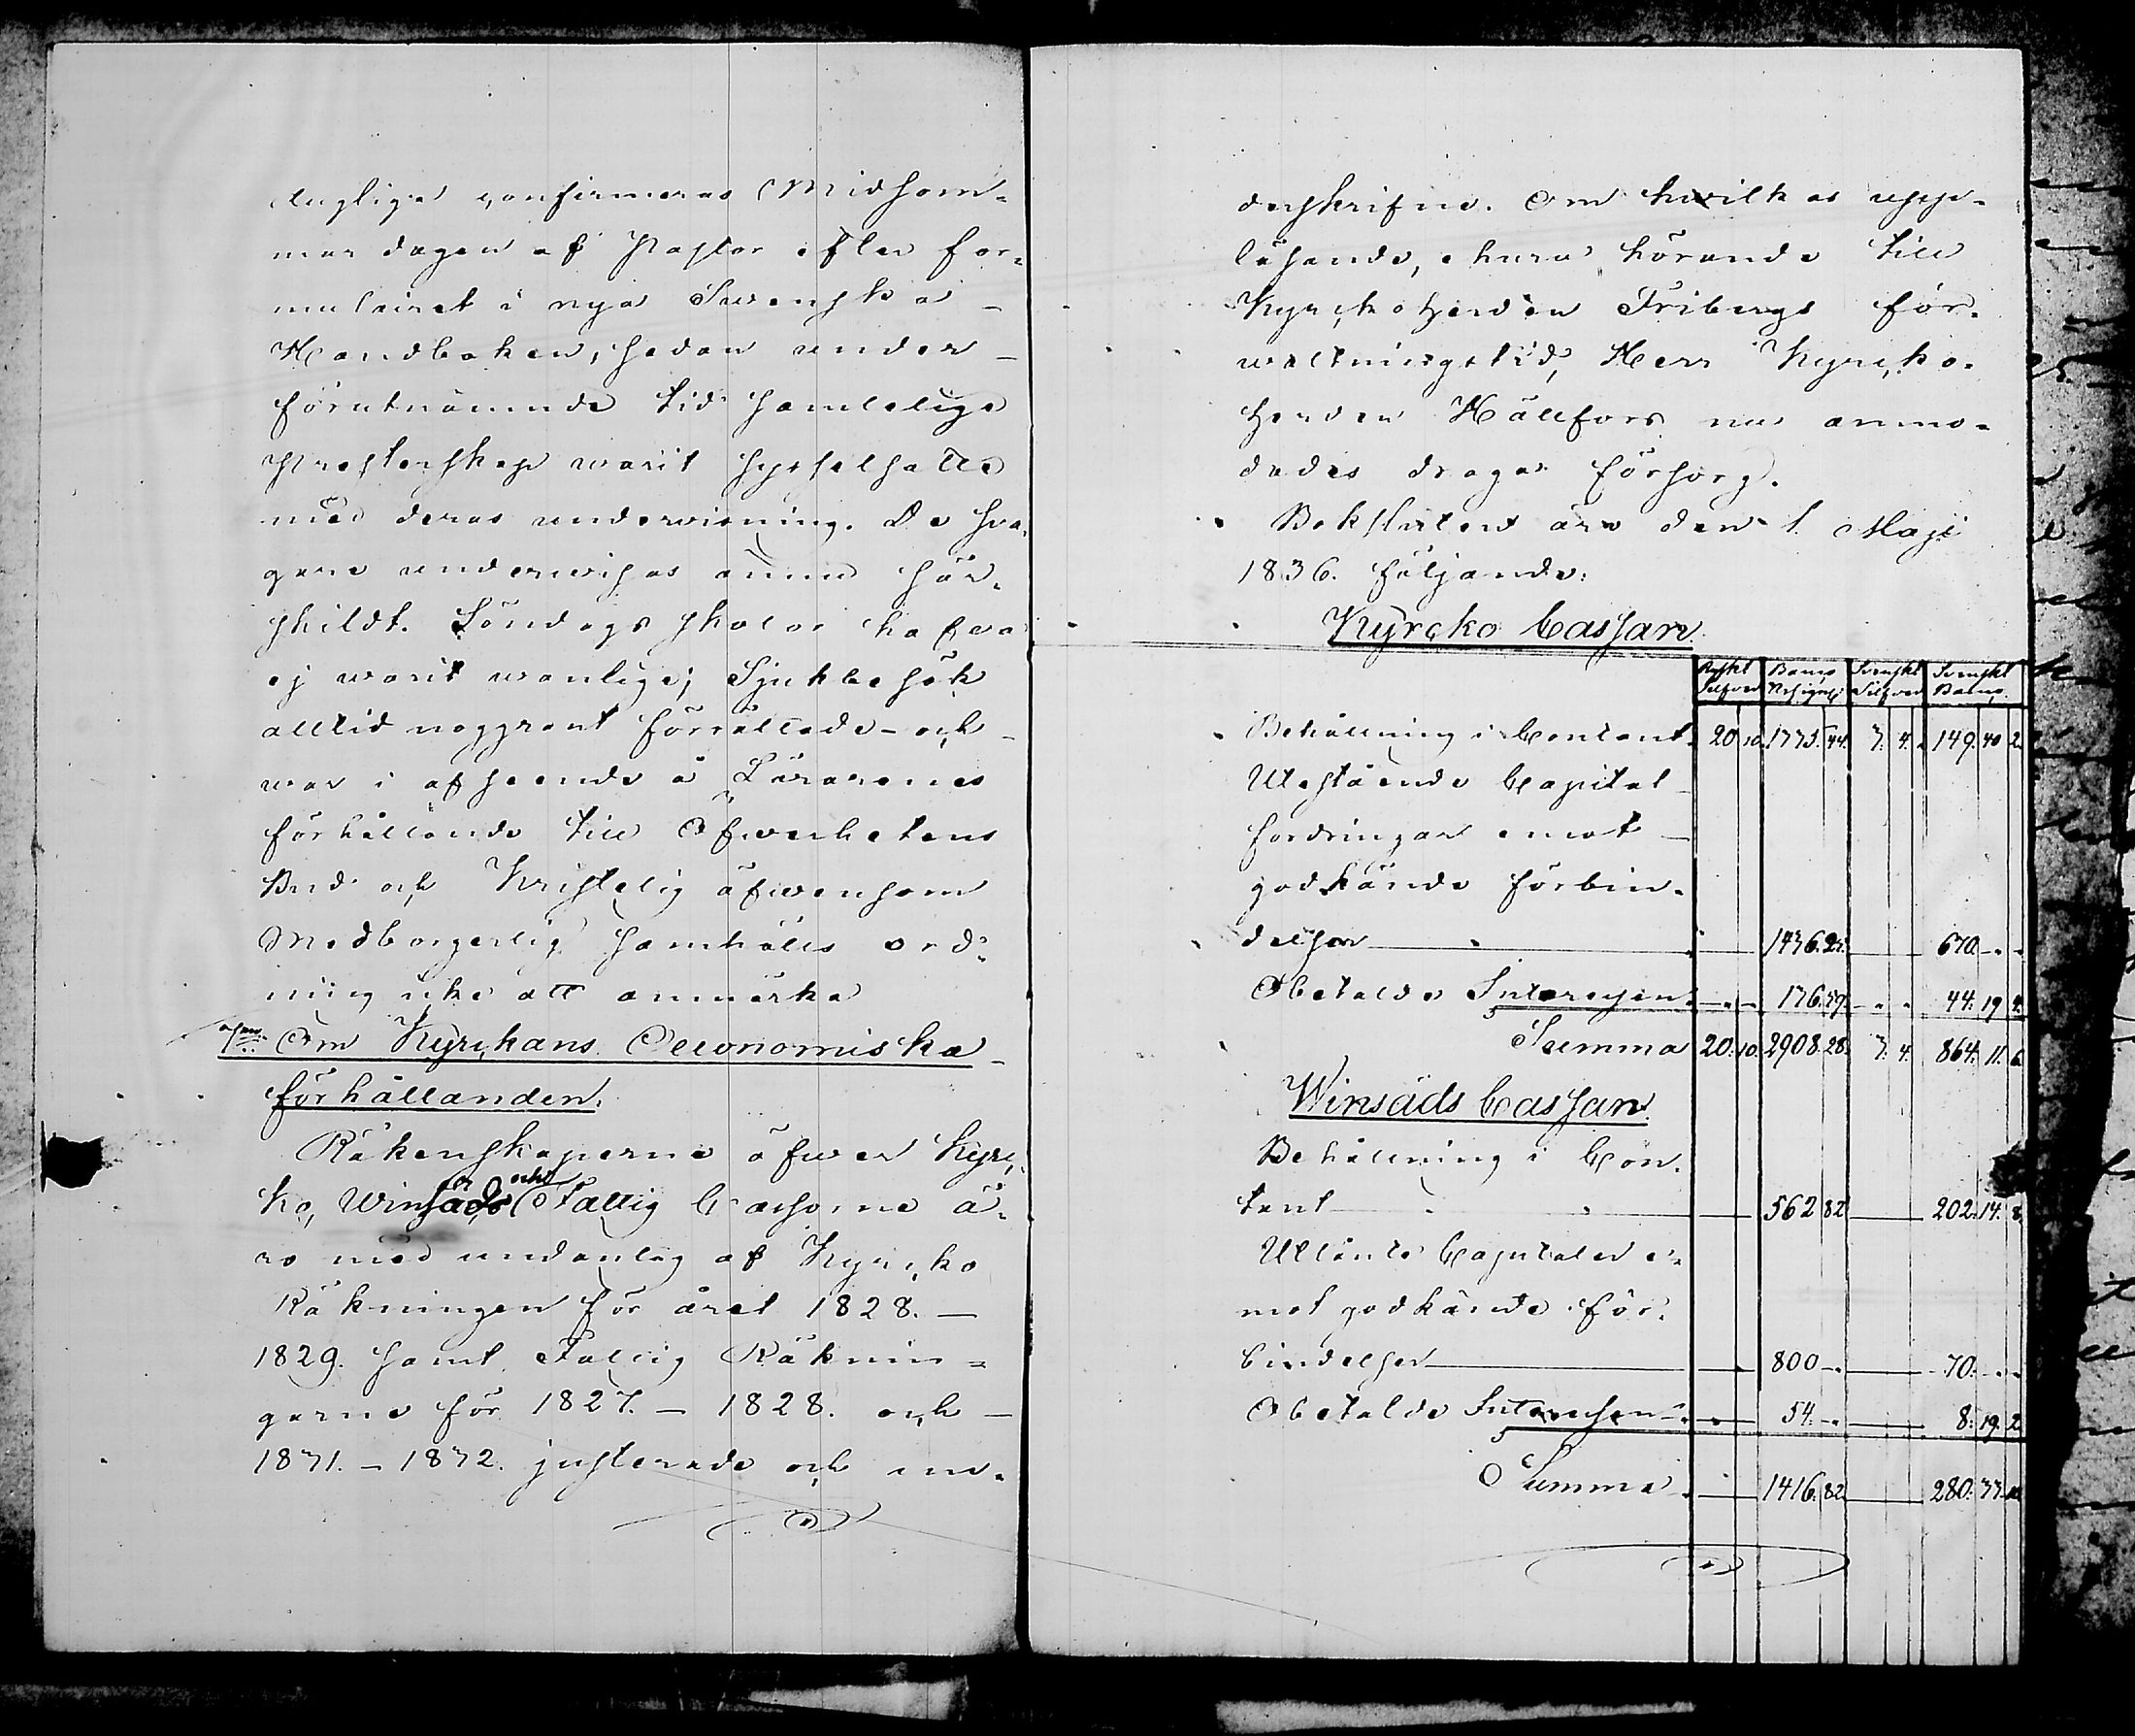 dugliga confirmeras Midsom-
mar dagen af Pastor efter for-
mulairet i nya Swenska -
Handboken, sedan under -
förutnämnde tid samtelige
Presterskap warit sysselsatte
med deras underwisning. De swa-
gare underwisas ännu sär-
skildt. Söndags skolor hafwa
ej warit wanlige; Sjukbesök
alltid noggrant förrättade - och -
war i afseende å Lärarenes
förhållande till Öfwerhetens
Bud och Kristelig äfwensom
Medborgerlig samhälls ord-
ning icke att anmärka
Om Kyrckans Oeconomiska -
förhållanden.
Räkenskaperne öfwer Kyrc-
ko, Winsäds och Fattig Cassorne ä-
ro med undantag af Kyrcko
Räkningen för året 1828. -
1829. samt Fattig Räknin-
garne för 1827. - 1828. och -
1831. - 1832. justerade och un-
derskrifne. Om hwilkas upp-
läsande, ehuru hörande till
Kyrckoherden Fribergs för-
waltningstid, Herr Kyrcko-
herden Hällfors nu anmo-
dades draga försorg.
Bokslutet äro den 1. Maji
1836. följande:
Kyrcko Cassan.
Ryskt Silfver Banco Assignat: Svenskt Silfver Svenskt Banco
Behållning i Contant. 20 10. 1775. 44. 7. 4. 149. 40 2.
Utestående Capital
fordringar emot -
godkände förbin-
delser 1436. 25. 670. - -
Obetalde Interessen. 176. 39. 44. 19 4.
Summa 20. 10. 2908. 28. 7. 4. 864. 11. 6.
Winsäds Cassan.
Behållning i Con-
tant 562 82 202. 14. 8.
Utlånte Capitaler e-
mot godkände för-
bindelser 800 -. 70. - -
Obetalde Interessen 54. -. 8. 19. 2
Summa 1416. 82 280. 33. 10